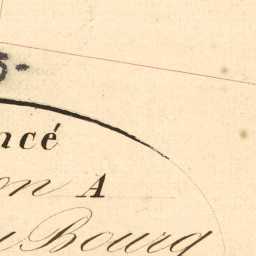 5-
ncé
on A
u Bourg